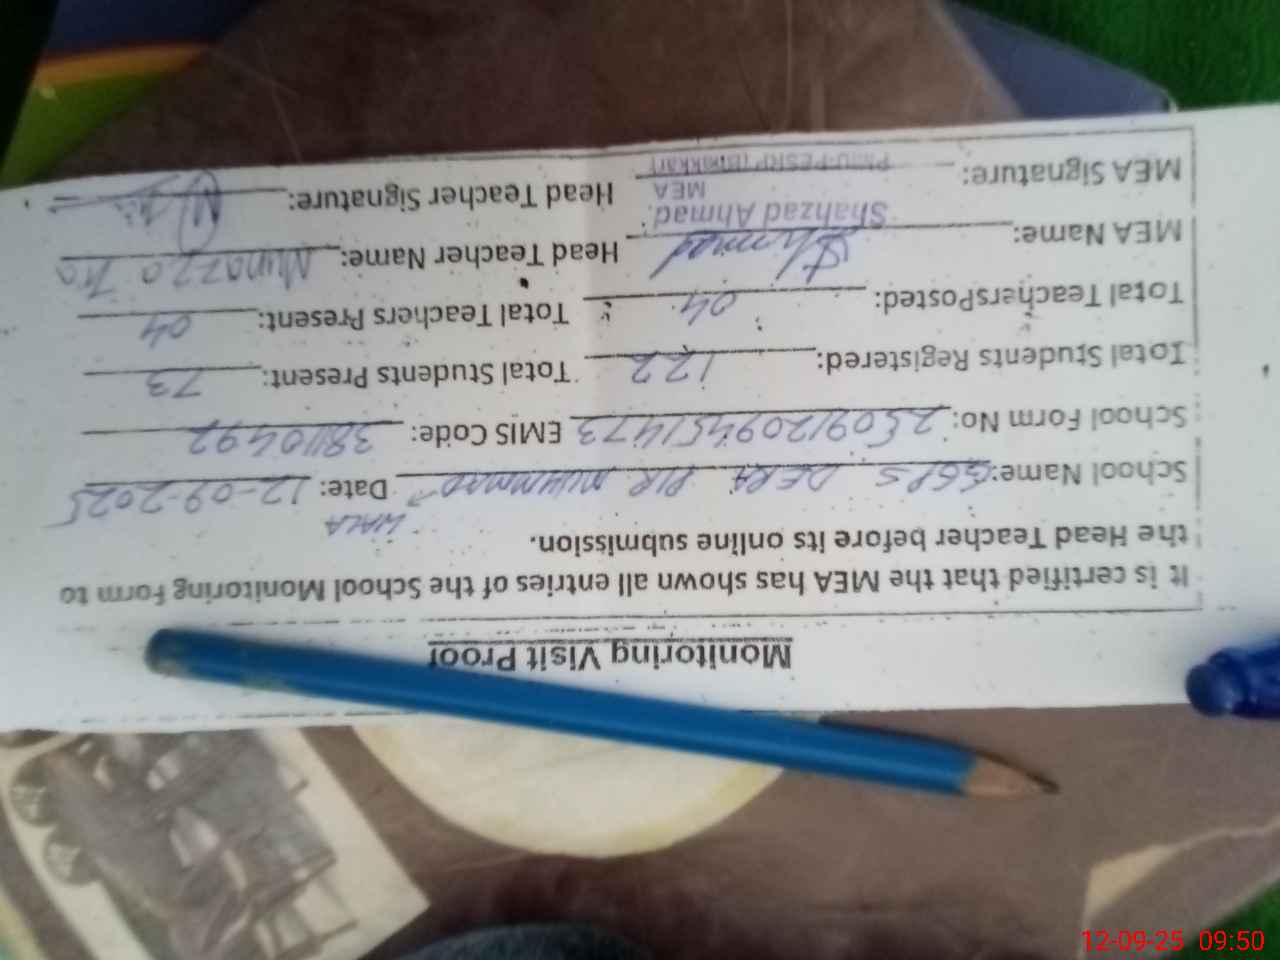 Monitoring Visit Proof
It is certified that the MEA has shown all entries of the School Monitoring Form to
the Head Teacher before its online submission.
WALA
School Name: GGPS DERA PIR MUHMMAD Date: 12-09-2025
School Form No: 25091209451473 EMIS Code: 38110492
Total Students Registered: 122 Total Students Present: 73
Total TeachersPosted: 04 Total Teachers Present: 04
MEA Name: Head Teacher Name: Munazza
Shahzad Ahmad
MEA
MEA Signature: PMIU-PESRP (Bhakkar) Head Teacher Signature:
12-09-25 09:50